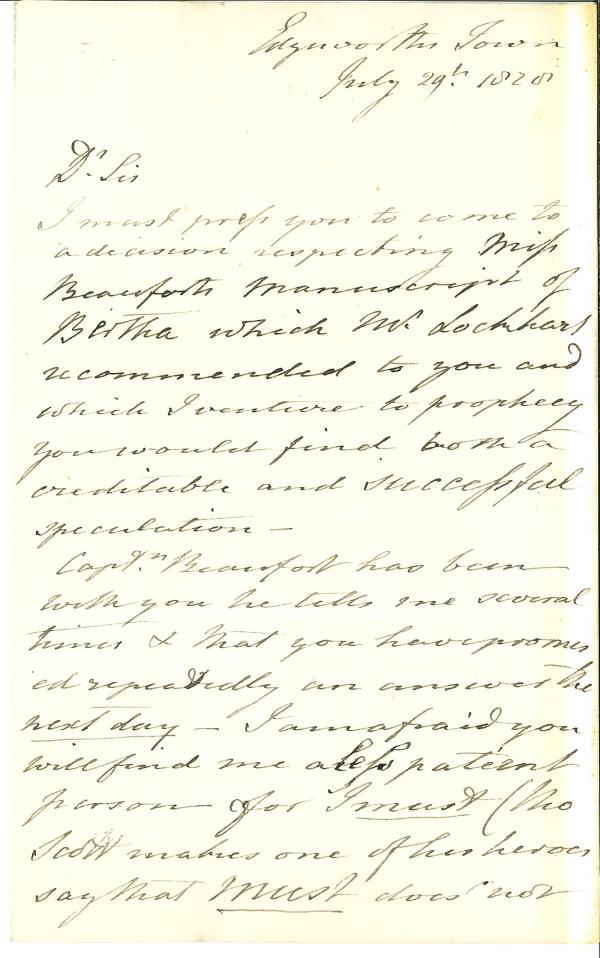 Edgeworths Town
July 29th. 1828
Dr. Sir
I must press you to come to
a decision respecting Miss
Beauforts Manuscript of
Bertha which Mr. Lockhart
recommended to you and
which I venture to prophecy
you would find both a
creditable and successful
speculation —
Captn. Beaufort has been
with you he tells me several
times & that you have promis
ed repeatedly an answer the
next day — I am afraid you
will find me a less patient
person for I must (tho
Scott makes one of his heroes
say that must does not